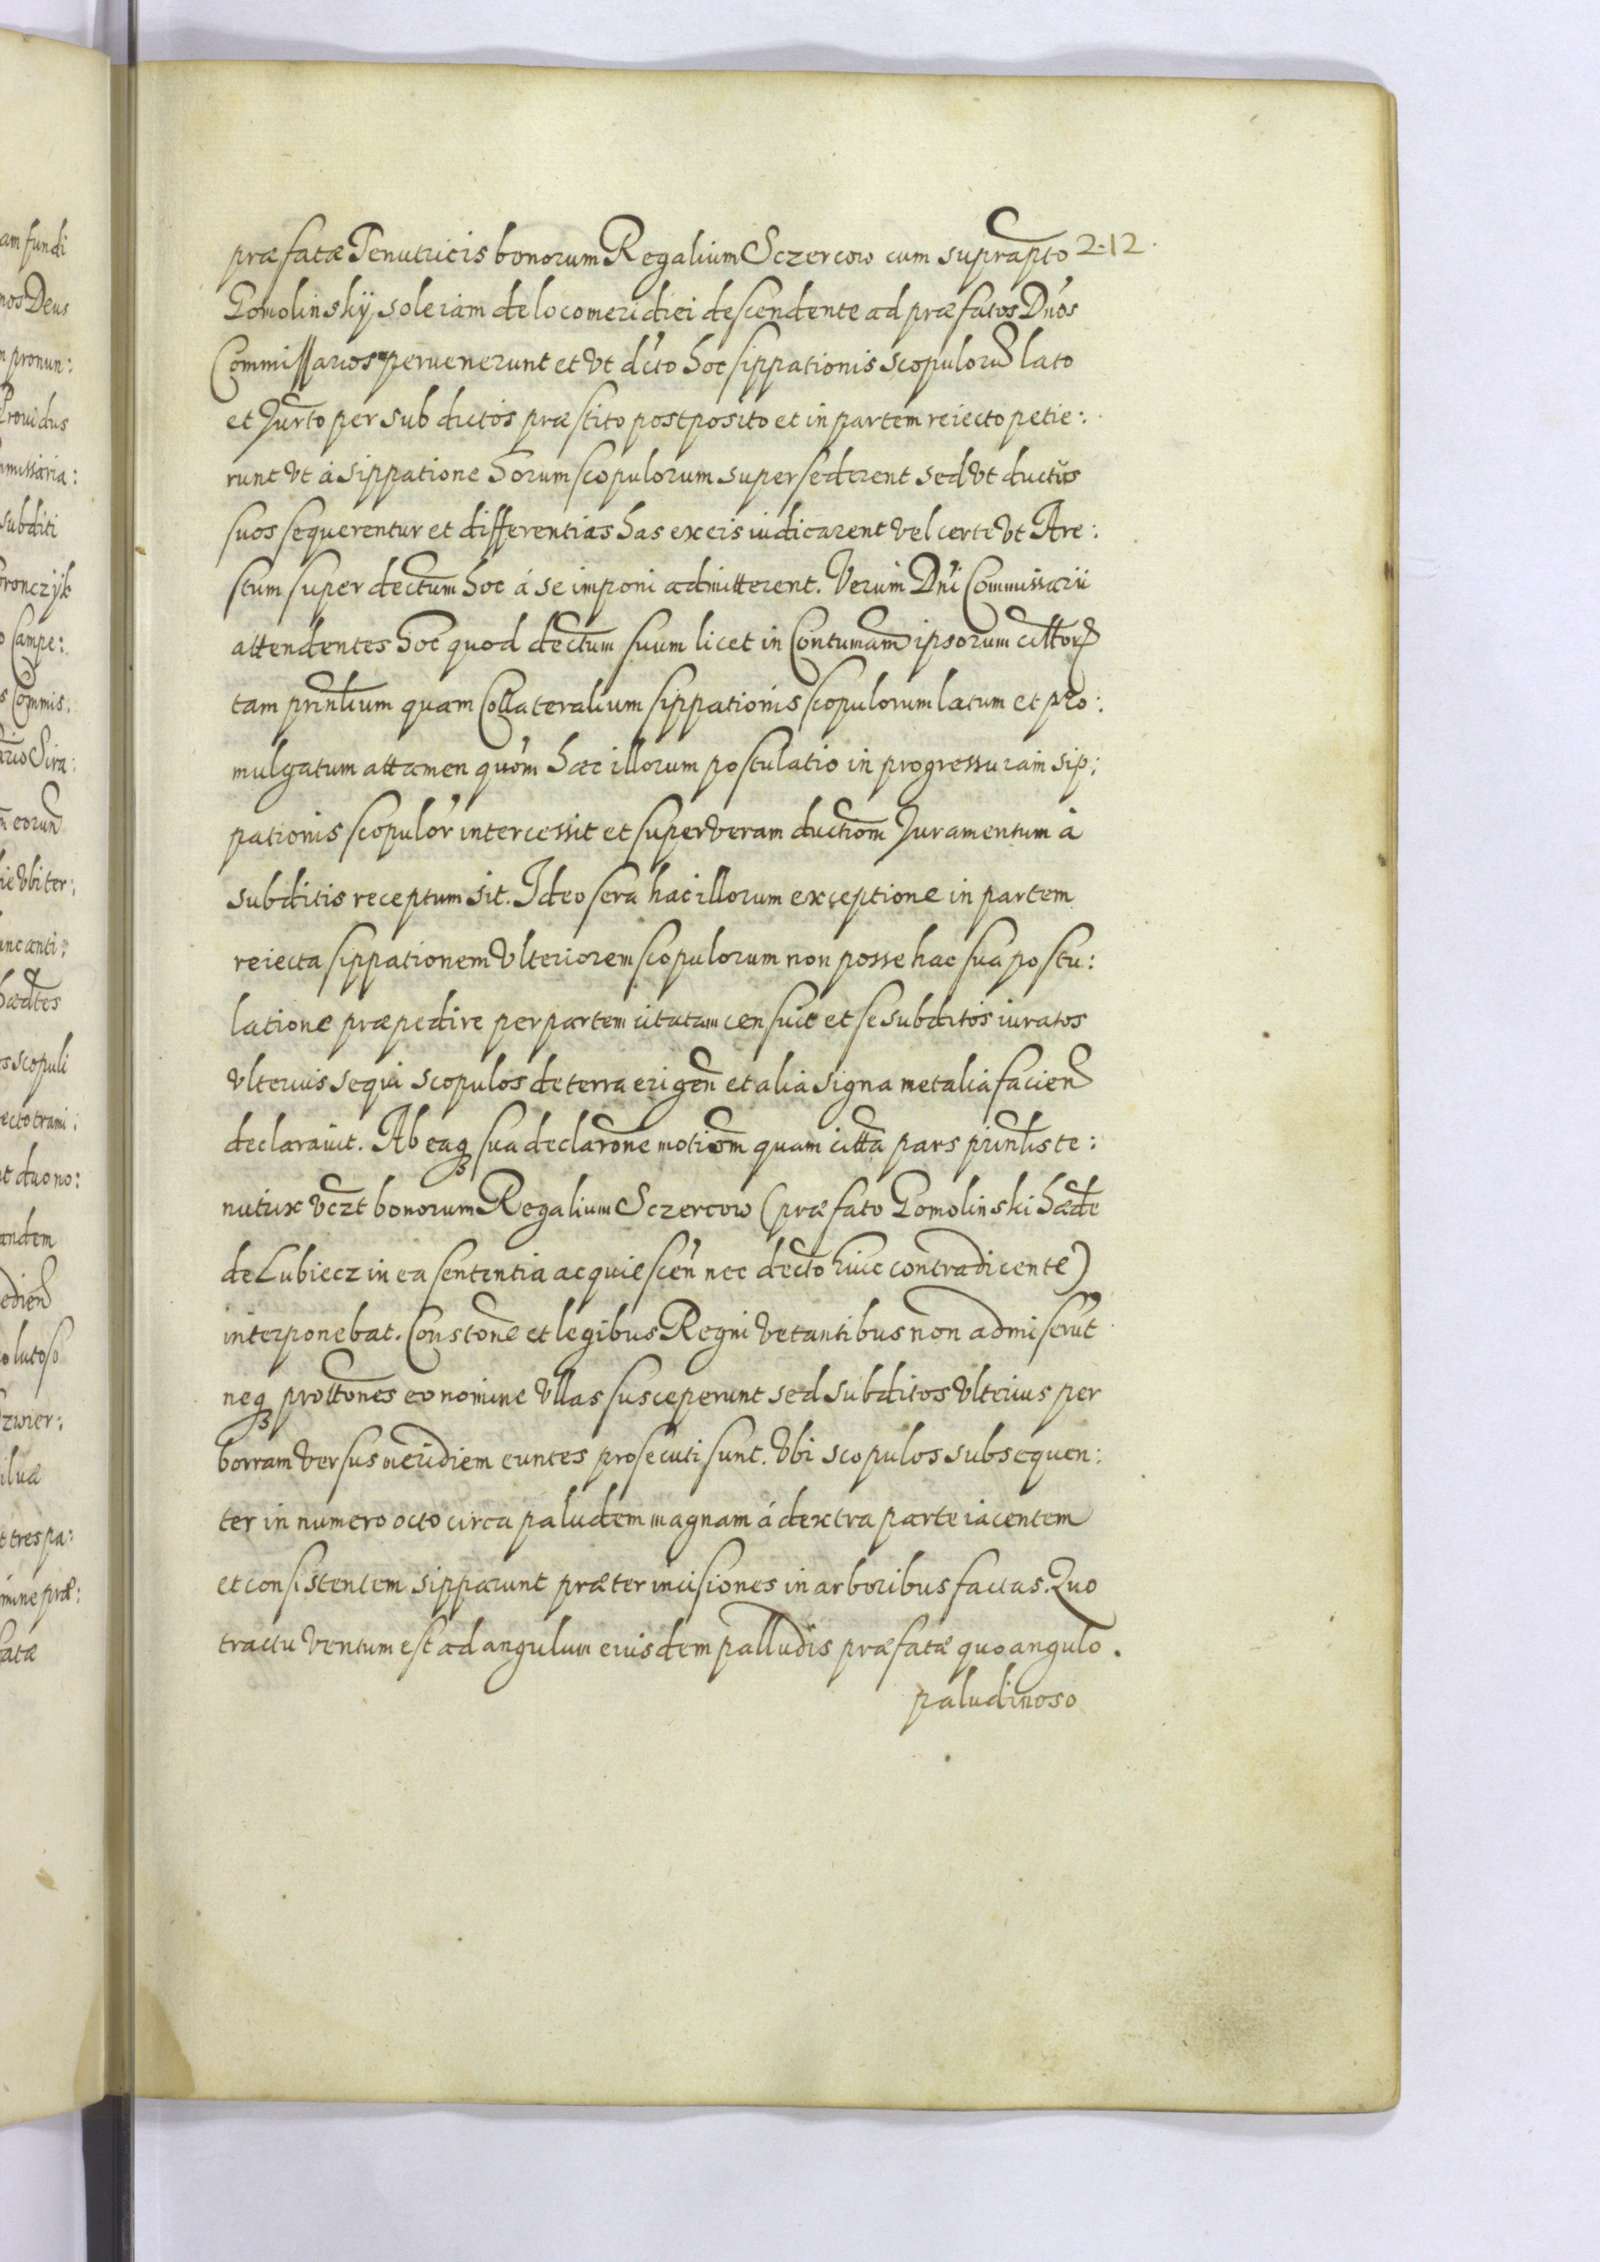 præfatæ Tenutricis bonorum Regalium Sczercow cum suprapto 212.
Gomolinskÿ sole iam de loco meridiei descendente ad præfatos Dnos
Commissarios pervenerunt et vt dcto hoc sippationis scopulorū lato
et Jurto per subditos præstito postposito et in partem reiecto petie:
runt vt à sippatione horum scopulorum supersederent sed vt ductus
suos sequerentur et differentias has ex eis iudicarent vel certe vt Are:
stum super dectum hoc á se imponi admitterent. Verum Dni Commissarii
attendentes hoc quod dectum suum licet in Contumam ipsorum cittorū
tam prinlium quam Collateralium sippationis scopulorum latum et pro:
mulgatum attamen quom hæc illorum postulatio in progressu iam sip:
pationis scopulor intercessit et super veram ductiom Juramentum à
subditis receptum sit. Ideo sera hac illorum exceptione in partem
reiecta sippationem vlteriorem scopulorum non posse hac sua postu:
latione præpedire per partem citatam censuit et se subditos iuratos
vlterius sequi scopulos de terra erigen et alia signa metalia facien
declaravit. Ab eaq sua declarone motiom quam citta pars prinlis te:
nutrix vczt bonorum Regalium Sczercow (præfato Gomolinski hæde
de Lubiecz in ea sententia acquiescen nec decto huic contradicente)
interponebat. Constone et legibus Regni vetantibus non admiserut
neq prottones eo nomine vllas susceperunt sed subditos vlterius per
borram versus meridiem euntes prosecuti sunt. Vbi scopulos subsequen:
ter in numero octo circa paludem magnam á dextra parte iacentem
et consistentem sipparunt præter incisiones in arboribus factas. Quo
tractu ventum est ad angulum eiusdem palludis præfatæ quo angulo.
paludinoso
am fundi
nos Deus
m pronun:
Providus
mmissaria:
subditi
o Campe:
s Commis:
ario Sira:
eorun
ie vbi ter:
unc anti:
hædtes
s scopuli
ecto trami:
t duo no:
andem
edien
o lutoso
zwier:
iluæ
t tres pa:
mine præ:
fatæ